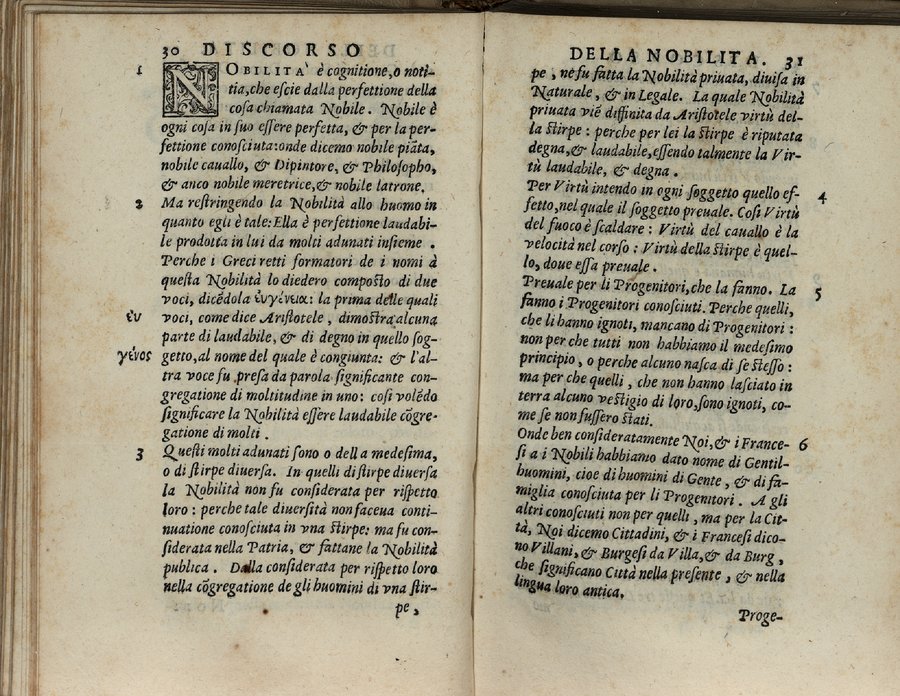 30 DISCORSO
1 NOBILITA` è cognitione, o noti-
tia, che escie dalla perfettione della
cosa chiamata Nobile. Nobile è
ogni cosa in suo essere perfetta, & per la per-
fettione conosciuta: onde dicemo nobile piāta,
nobile cauallo, & Dipintore, & Philosopho,
& anco nobile meretrice, & nobile latrone.
2 Ma restringendo la Nobilità allo huomo in
quanto egli è tale: Ella è perfettione laudabi-
le prodotta in lui da molti adunati insieme .
Perche i Greci retti formatori de i nomi à
questa Nobilità lo diedero composto di due
voci, dicēdola ἐυγένεια: la prima delle quali
ἐυ voci, come dice Aristotele , dimostra alcuna
parte di laudabile, & di degno in quello sog-
γένος getto, al nome del quale è congiunta: & l'al-
tra voce fu presa da parola significante con-
gregatione di moltitudine in uno: cosi volēdo
significare la Nobilità essere laudabile cōgre-
gatione di molti .
3 Questi molti adunati sono o della medesima,
o di stirpe diuersa. In quelli di stirpe diuersa
la Nobilità non fu considerata per rispetto
loro : perche tale diuersità non faceua conti-
nuatione conosciuta in vna stirpe: ma fu con-
siderata nella Patria, & fattane la Nobilità
publica . Dalla considerata per rispetto loro
nella cōgregatione de gli huomini di vna stir-
pe,
DELLA NOBILITA. 31
pe , ne fu fatta la Nobilità priuata, diuisa in
Naturale, & in Legale. La quale Nobilità
priuata viē diffinita da Aristotele virtù del-
la stirpe : perche per lei la stirpe è riputata
degna, & laudabile, essendo talmente la Vir-
tù laudabile, & degna .
Per Virtù intendo in ogni soggetto quello ef- 4
fetto, nel quale il soggetto preuale. Cosi Virtù
del fuoco è scaldare : Virtù del cauallo è la
velocità nel corso : Virtù della stirpe è quel-
lo, doue essa preuale .
Preuale per li Progenitori, che la fanno. La 5
fanno i Progenitori conosciuti. Perche quelli,
che li hanno ignoti, mancano di Progenitori :
non per che tutti non habbiamo il medesimo
principio , o perche alcuno nasca di se stesso :
ma per che quelli , che non hanno lasciato in
terra alcuno vestigio di loro, sono ignoti, co-
me se non fussero stati.
Onde ben consideratamente Noi, & i France- 6
si a i Nobili habbiamo dato nome di Gentil-
huomini, cioe di huomini di Gente , & di fa-
miglia conosciuta per li Progenitori . A gli
altri conosciuti non per quelli , ma per la Cit-
tà, Noi dicemo Cittadini, & i Francesi dico-
no Villani, & Burgesi da Villa, & da Burg ,
che significano Città nella presente , & nella
lingua loro antica.
Proge-